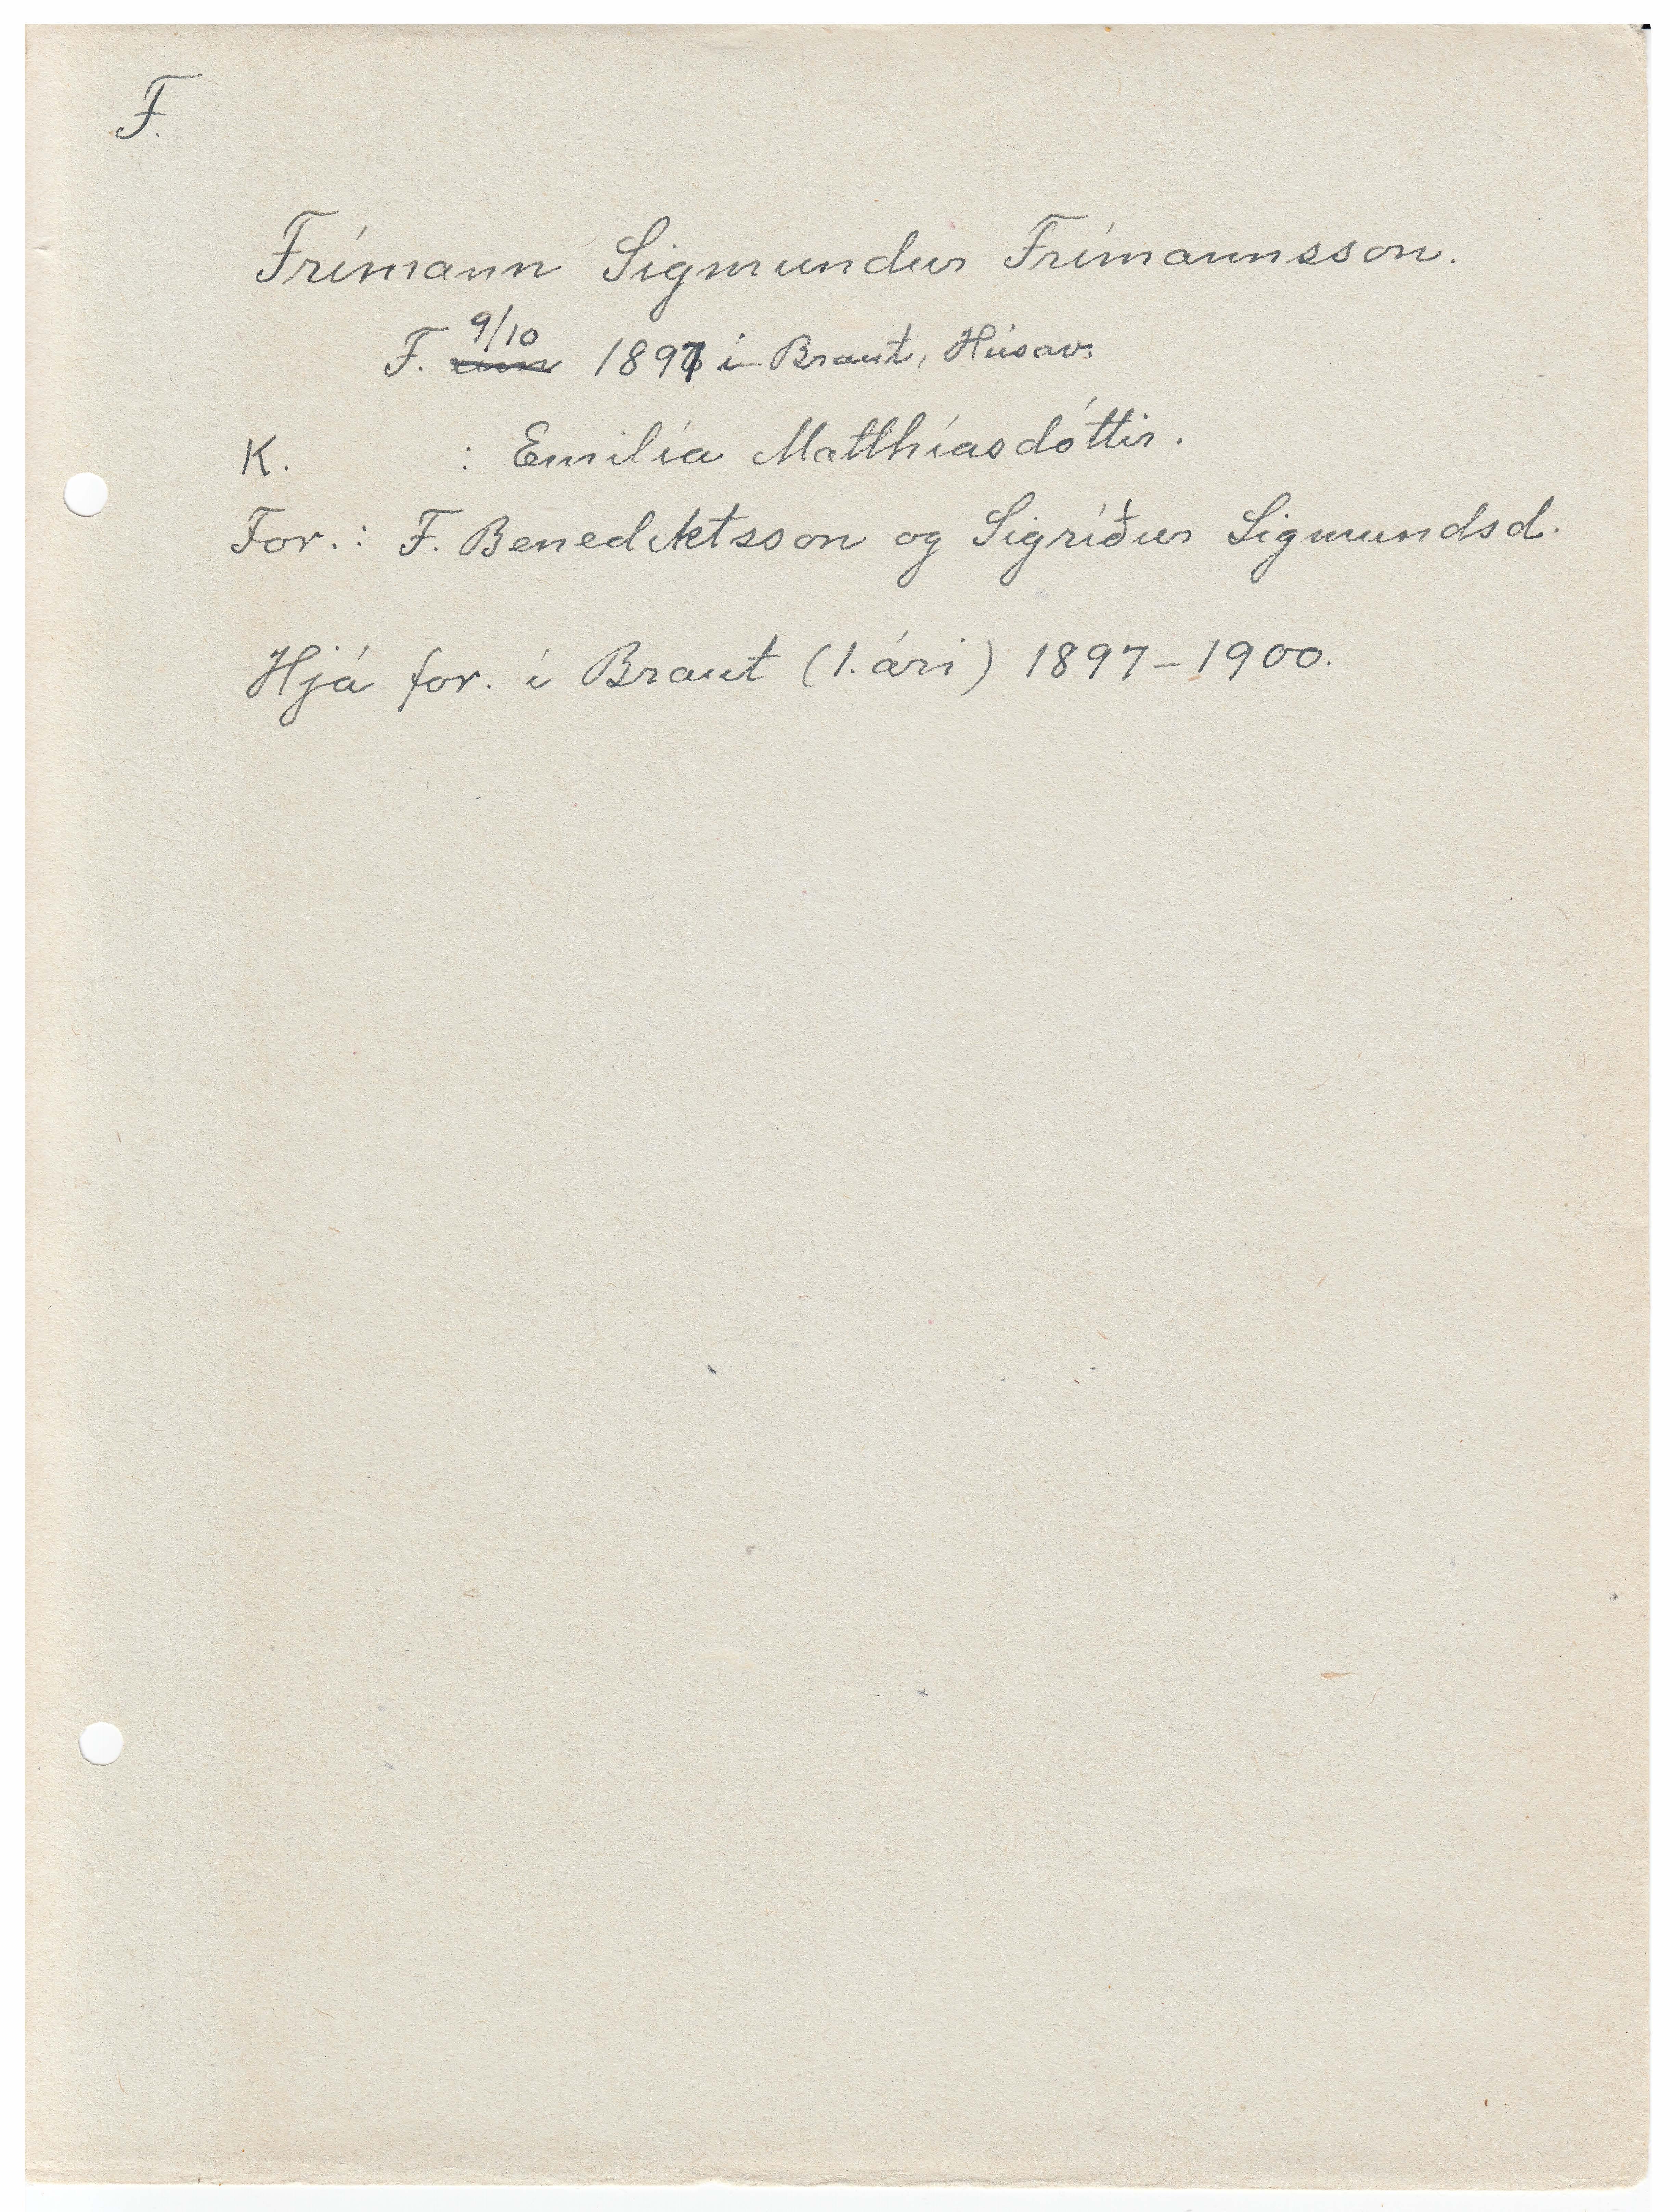 F.
Frímann Sigmundur Frímannsson.
9/10
F. um 1897 í Braut, Húsav.
K. : Emilía Matthíasdóttir.
For.: F. Benediktsson og Sigríður Sigmundsd.
Hjá for. í Braut (1. ári) 1897-1900.